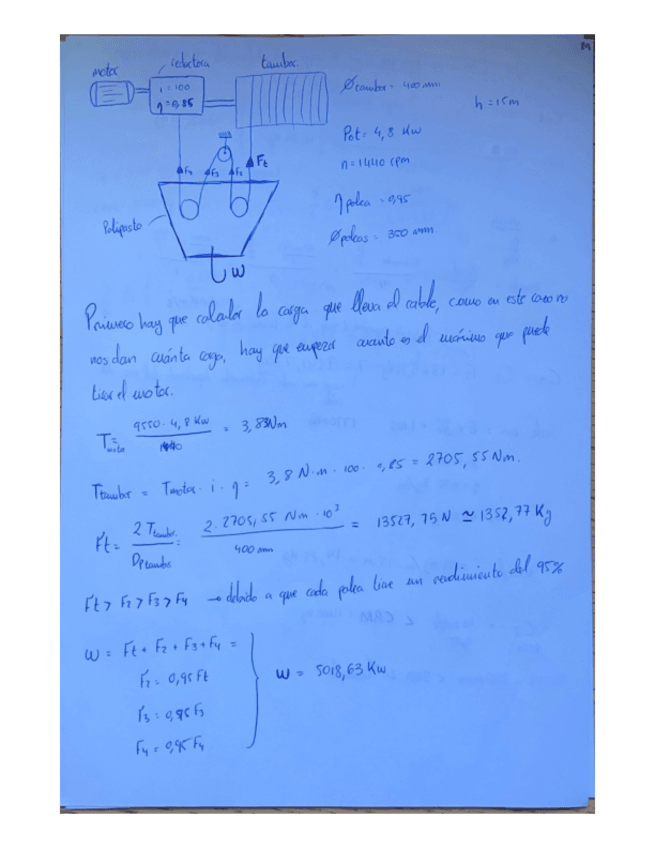 motor
reductora
tambor
i = 100
η = 0,85
Øtambor = 400 mm
h = 15m
Pot = 4,8 Kw
n = 1440 rpm
η polea = 0,95
Øpoleas = 350 mm
F4
F3
F2
Ft
Polipasto
W
Primero hay que calcular la carga que lleva el cable, como en este caso no
nos dan cuánta carga, hay que empezar cuanto es el máximo que puede
tirar el motor.
Tmotor = 9550 · 4,8 Kw / 1440 = 3,83Nm
Ttambor = Tmotor · i · η = 3,8 N·m · 100 · 0,85 = 2705,55 Nm.
Ft = 2 Ttambor / Dptambor = 2 · 2705,55 Nm · 10³ / 400 mm = 13527,75 N ≃ 1352,77 Kg
Ft > F2 > F3 > F4 → debido a que cada polea tiene un rendimiento del 95%
W = Ft + F2 + F3 + F4 =
F2 = 0,95 Ft
W = 5018,63 Kw
F3 = 0,95 F3
F4 = 0,95 F4